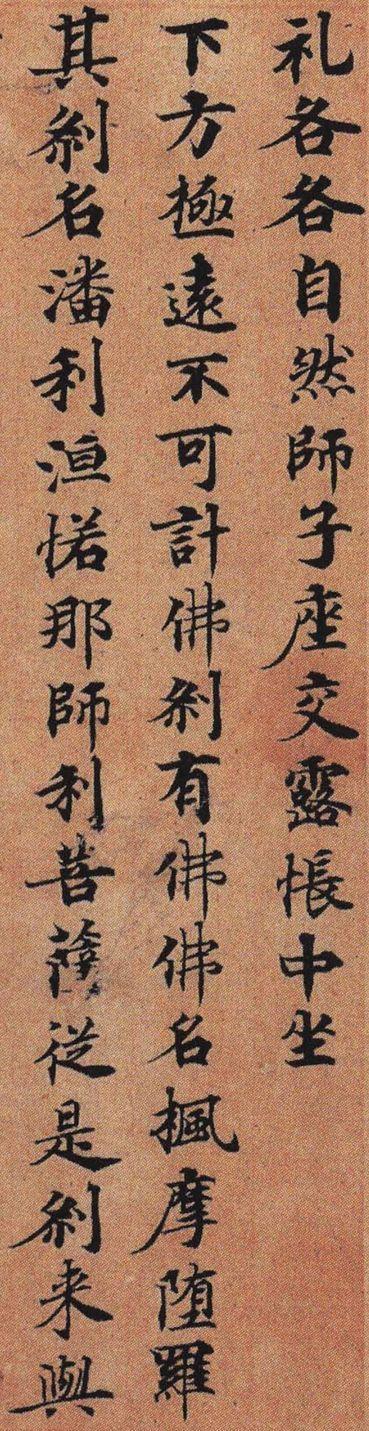 礼各各自然師子座交露帳中坐
下方極遠不可計佛剎有佛佛名楓摩堕羅
其剎名潘利洹惒那師利菩薩從是剎来與